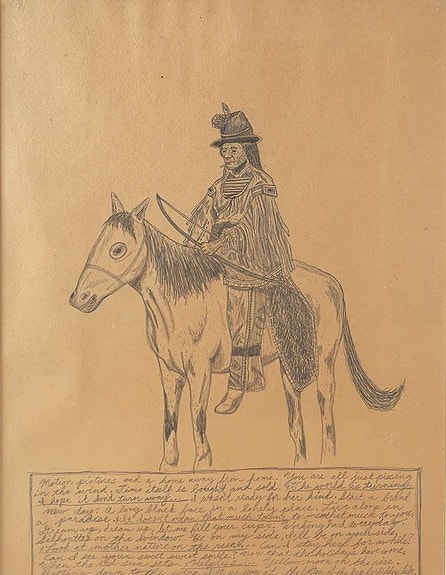 Motion pictures and a home away from home. You are all just pissing
in the wind. Time itself is bought and sold. The world is turning
I hope it don't turn away. I wasn't ready for her kind. Start a brand
new day. A long black face in a lonely place. Live along in
a paradise. It doesn't mean that much to me to mean that much to you.
Dream up, dream up, let me fill your cup. Working hard everyday
Silhouettes on the window. Be on my side, I'll be on your side.
Look at mother nature on the run. Can I stay here for a while?
Can I see your sweet sweet smile? Now that the holidays have come.
When the red sun sets. Yellow moon on the rise.